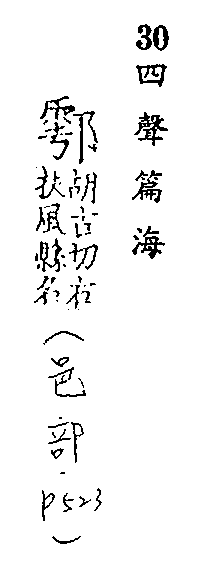 30 四聲篇海
鄠 胡古切在
扶風縣名
（邑部.
p523）